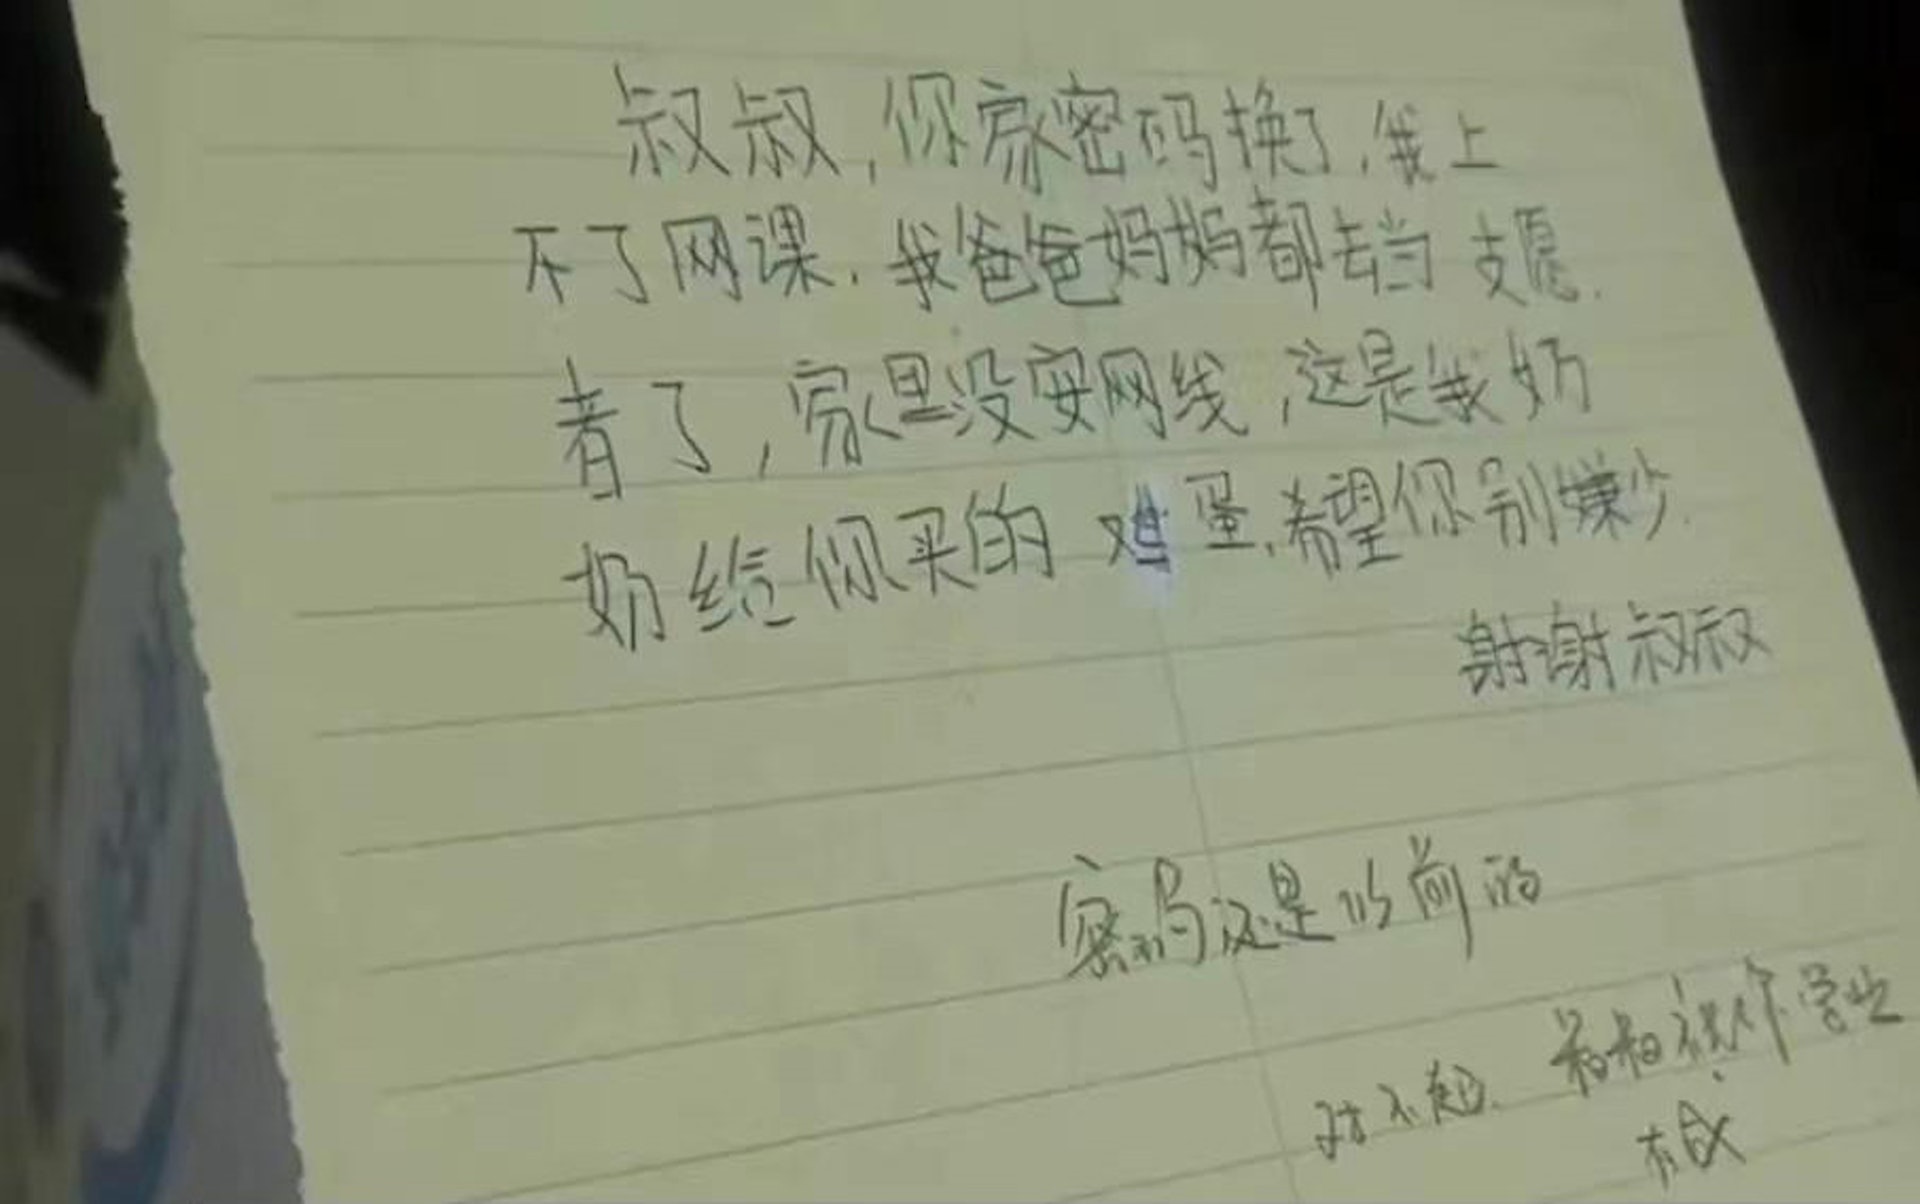 叔叔,你家密码换了,我上
不了网课.我爸爸妈妈都去当支愿.
者了,家里没安网线,这是我奶
奶给你买的鸡蛋.希望你别嫌少.
谢谢叔叔
密码还是以前的
对不起.叔叔祝你学业
有成